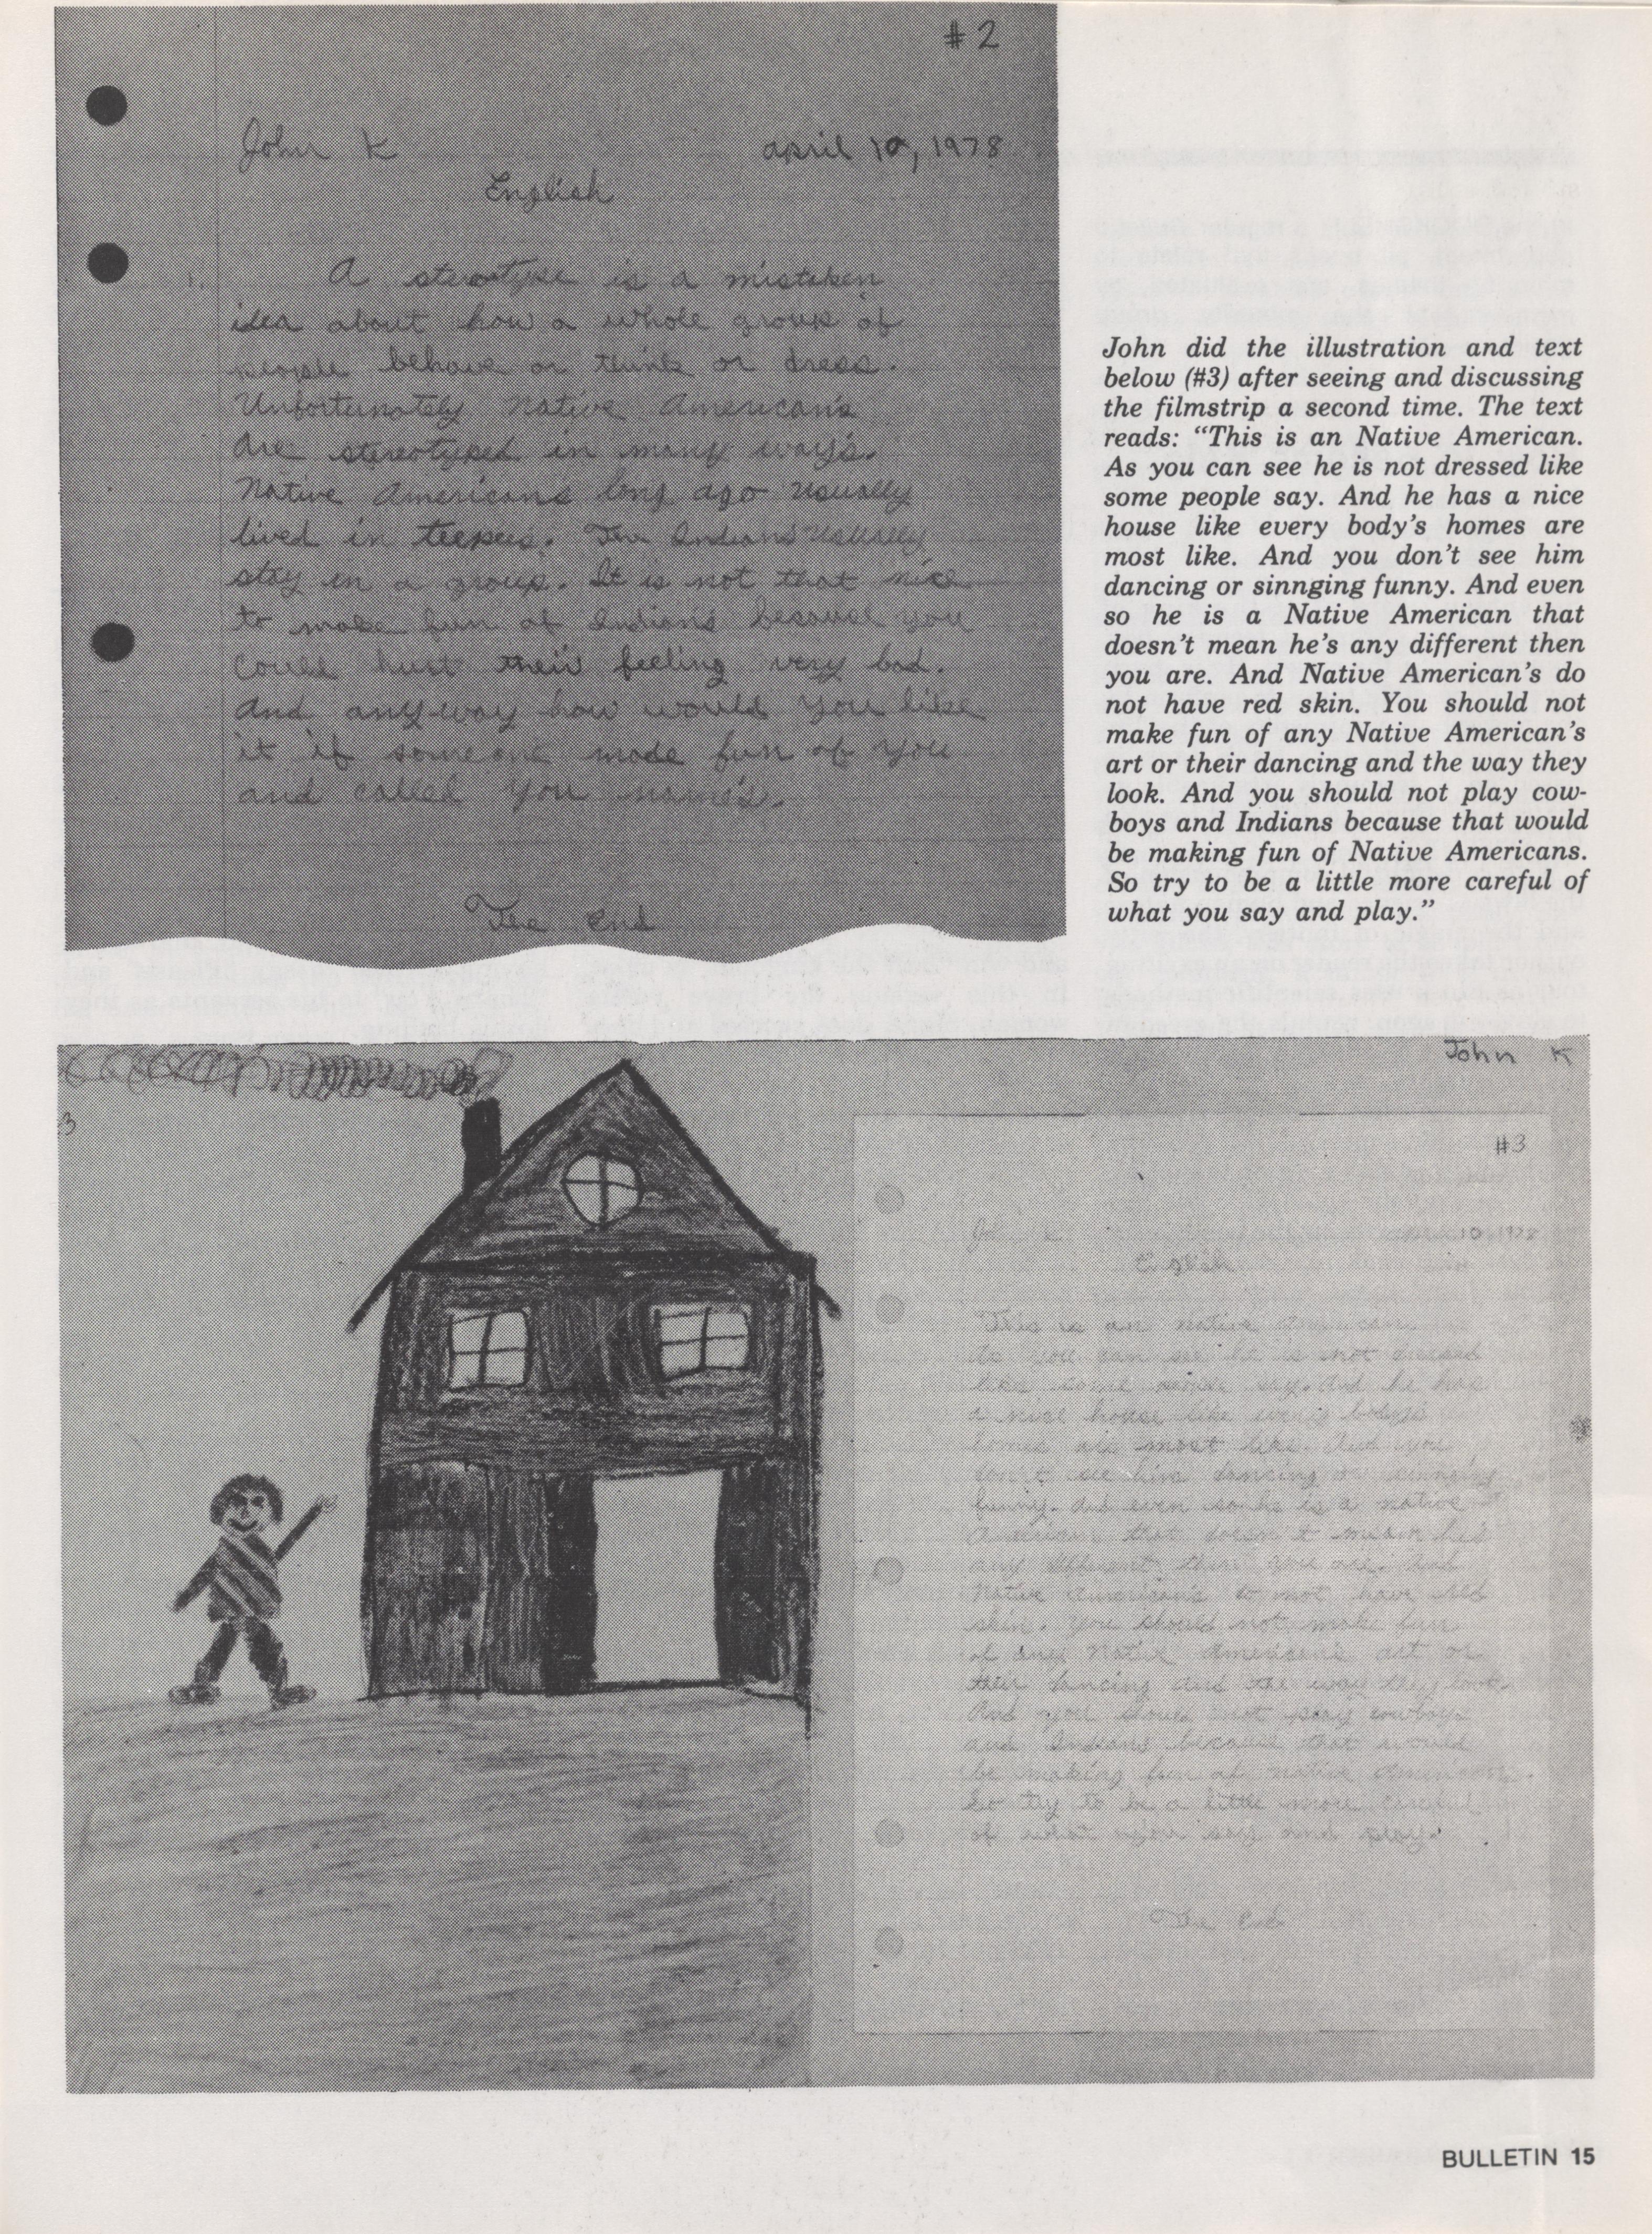 #2
John K
april 10, 1978
English
1.
A sterotype is a mistaken
idea about how a whole group of
people behave or think or dress.
Unfortunately Native American's
are stereotyped in many way's.
Native Americans long ago usually
lived in teepees. The Indians usually
stay in a group. It is not that nice
to make fun of Indians because you
could hurt their feeling very bad.
And anyway how would you like
it if someone made fun of you
and called you name's.
The End
John did the illustration and text
below (#3) after seeing and discussing
the filmstrip a second time. The text
reads: “This is an Native American.
As you can see he is not dressed like
some people say. And he has a nice
house like every body’s homes are
most like. And you don’t see him
dancing or sinnging funny. And even
so he is a Native American that
doesn’t mean he’s any different then
you are. And Native American’s do
not have red skin. You should not
make fun of any Native American’s
art or their dancing and the way they
look. And you should not play cow-
boys and Indians because that would
be making fun of Native Americans.
So try to be a little more careful of
what you say and play.”
John K
3
#3
English
This is an native American.
As you can see he is not dressed
like some people say. And he has
a nice house like every body's
homes are most like. And you
don't see him dancing or sinnging
funny. And even so he is a native
American that doesn't mean he's
any different then you are. And
Native American's do not have red
skin. You should not make fun
of any Native American's art or
their dancing and the way they look.
And you should not play cowboys
and Indians because that would
be making fun of native Americans.
So try to be a little more careful
of what you say and play.
The End
BULLETIN 15